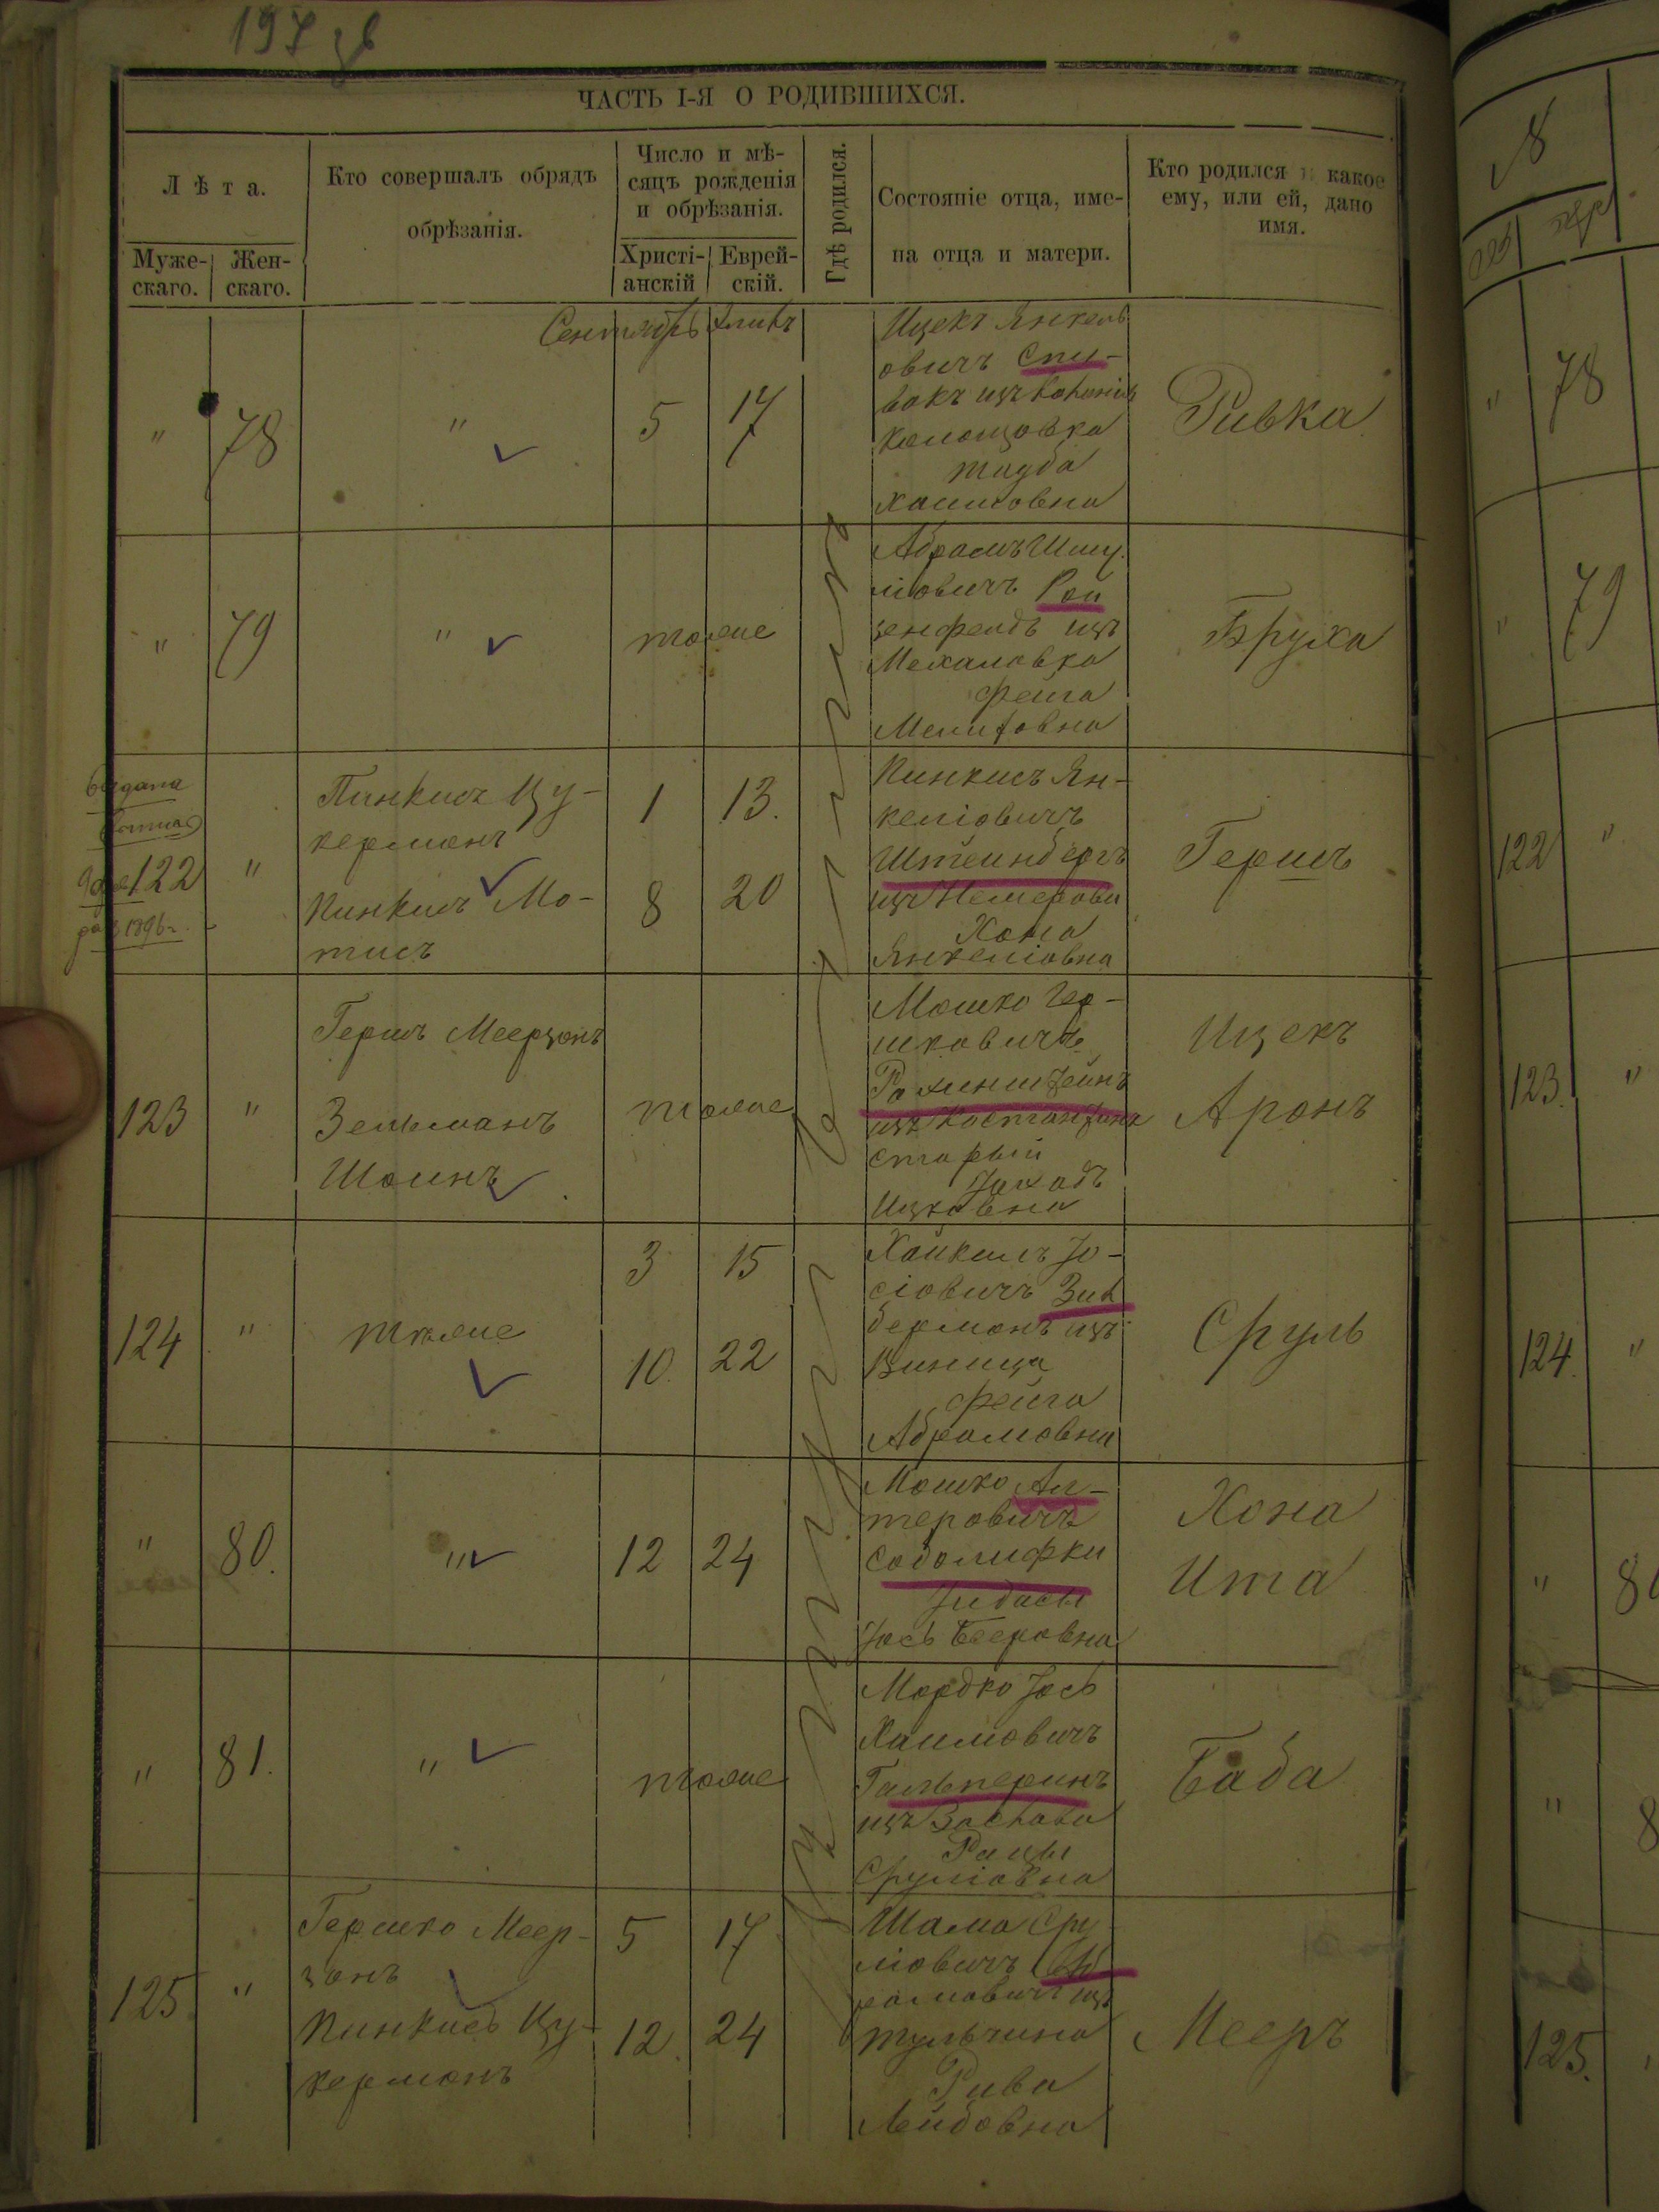 ЧАСТЬ I-Я О РОДИВШИХСЯ.
Лѣта.
Муже-
скаго.
Жен-
скаго.
Кто совершалъ обрядъ
обрѣзанія.
Число и мѣ-
сяцъ рожденія
и обрѣзанія.
Христі-
анскій
Еврей-
скій.
Гдѣ родился.
Состояніе отца, име-
на отца и матери.
Кто родился и какое
ему, или ей, дано
имя.
Сентябрь
" 78 " 5 17
Ицекъ Янкель
овичъ Спи-
вакъ изъ
Хаимовна
Ривка
" 79 " тоже
Абрамъ Шму
ліовичъ Рой
зенфелдъ изъ
Мехаловка
Фейга
Бруха
выдана
122 "
Пинкисъ Цу-
керманъ
Пинкисъ Мо-
тисъ
1 13.
8 20
Пинкисъ Ян-
келіовичъ
Штейнбергъ
изъ Немерова
Хона
Янкеліовна
Гершъ
123 "
Гершъ Меерзонъ
Зельманъ
Шоинъ
тоже
Мошко Гер-
шковичъ
изъ
старый
Ицковна
Ицекъ
Аронъ
124 " тоже
3 15
10. 22
Хайкель Іо-
сіовичъ Зил
берманъ изъ
Виница
Фейга
Абрамовна
Сруль
" 80. " 12 24
Мошко Ал-
теровичъ
Іось Беровна
Хона
Ита
" 81. " тоже
Мордко Іось
Хаимовичъ
Гальперинъ
изъ Заслава
Рацы
Сруліовна
Баба
125 "
Гершко Меер-
зонъ
Пинкисъ Цу-
керманъ
5 17
12. 24
Шама Сру
ліовичъ Аб
рамовичъ изъ
Тульчина
Рива
Лейбовна
Мееръ
78
79
122 "
123. "
124. "
"
"
125.